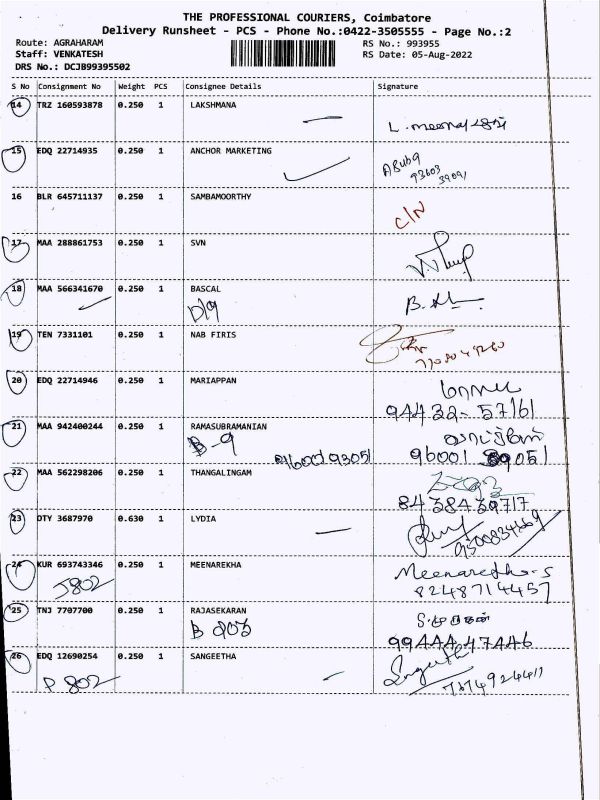 THE PROFESSIONAL COURIERS, Coimbatore
Delivery Runsheet - PCS - Phone No.:0422-3505555 - Page No.:2
Route: AGRAHARAM
RS No.: 993955
Staff: VENKATESH
RS Date: 05-Aug-2022
DRS No.: DCJB99395502
S No Consignment No Weight PCS Consignee Details Signature
14 TRZ 160593878 0.250 1 LAKSHMANA
15 EDQ 22714935 0.250 1 ANCHOR MARKETING
93603
39091
16 BLR 645711137 0.250 1 SAMBAMOORTHY
C/N
17 MAA 288861753 0.250 1 SVN
18 MAA 566341670 0.250 1 BASCAL
D/9
19 TEN 7331101 0.250 1 NAB FIRIS
20 EDQ 22714946 0.250 1 MARIAPPAN
94432-57161
21 MAA 942400244 0.250 1 RAMASUBRAMANIAN
B-9
9600193051
22 MAA 562298206 0.250 1 THANGALINGAM
8438439717
23 DTY 3687970 0.630 1 LYDIA
9500834669
24 KUR 693743346 0.250 1 MEENAREKHA Meenarekha-S
J802 8248714457
25 TNJ 7707700 0.250 1 RAJASEKARAN
B 803 9944447446
26 EDQ 12690254 0.250 1 SANGEETHA Sangeetha
P 802 7674924411